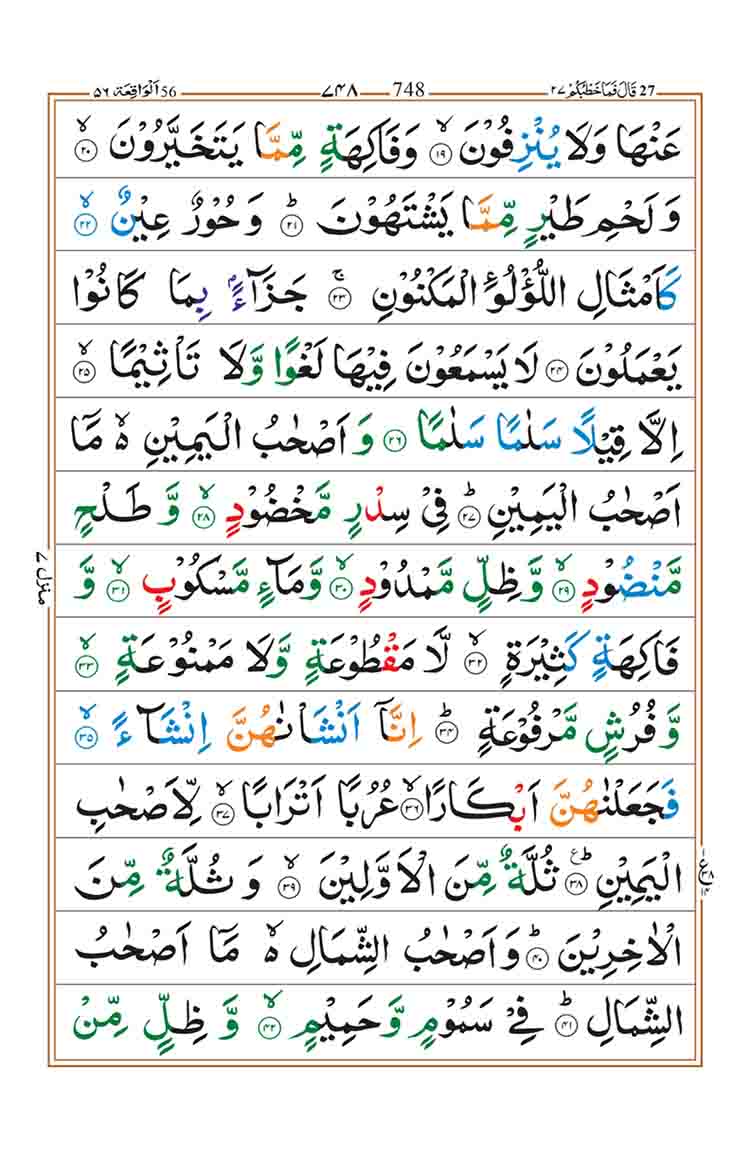 27 قَالَ فَمَا خَطْبُكُمْ ٢٧ 748 ٧٤٨ 56 اَلْوَاقِعَة ٥٦
عَنْهَا وَلَا يُنْزِفُوْنَ ۙ﴿١٩﴾ وَفَاكِهَةٍ مِّمَّا يَتَخَيَّرُوْنَ ۙ﴿٢٠﴾
وَلَحْمِ طَيْرٍ مِّمَّا يَشْتَهُوْنَ ؕ﴿٢١﴾ وَحُوْرٌ عِيْنٌ ۙ﴿٢٢﴾
كَاَمْثَالِ اللُّؤْلُوٴِ الْمَكْنُوْنِ ۚ﴿٢٣﴾ جَزَآءًۢ بِمَا كَانُوْا
يَعْمَلُوْنَ ﴿٢٤﴾ لَا يَسْمَعُوْنَ فِيْهَا لَغْوًا وَّلَا تَاْثِيْمًا ۙ﴿٢٥﴾
اِلَّا قِيْلًا سَلٰمًا سَلٰمًا ﴿٢٦﴾ وَاَصْحٰبُ الْيَمِيْنِ ۙ۬ مَاۤ
اَصْحٰبُ الْيَمِيْنِ ؕ﴿٢٧﴾ فِيْ سِدْرٍ مَّخْضُوْدٍ ۙ﴿٢٨﴾ وَّطَلْحٍ
مَّنْضُوْدٍ ۙ﴿٢٩﴾ وَّظِلٍّ مَّمْدُوْدٍ ۙ﴿٣٠﴾ وَّمَآءٍ مَّسْكُوْبٍ ۙ﴿٣١﴾ وَّ
فَاكِهَةٍ كَثِيْرَةٍ ۙ﴿٣٢﴾ لَّا مَقْطُوْعَةٍ وَّلَا مَمْنُوْعَةٍ ۙ﴿٣٣﴾
وَّفُرُشٍ مَّرْفُوْعَةٍ ؕ﴿٣٤﴾ اِنَّاۤ اَنْشَاْنٰهُنَّ اِنْشَآءً ۙ﴿٣٥﴾
فَجَعَلْنٰهُنَّ اَبْكَارًا ۙ﴿٣٦﴾ عُرُبًا اَتْرَابًا ۙ﴿٣٧﴾ لِّاَصْحٰبِ
الْيَمِيْنِ ؕ﴿٣٨﴾ ثُلَّةٌ مِّنَ الْاَوَّلِيْنَ ۙ﴿٣٩﴾ وَثُلَّةٌ مِّنَ
الْاٰخِرِيْنَ ؕ﴿٤٠﴾ وَاَصْحٰبُ الشِّمَالِ ۙ۬ مَاۤ اَصْحٰبُ
الشِّمَالِ ؕ﴿٤١﴾ فِيْ سَمُوْمٍ وَّحَمِيْمٍ ۙ﴿٤٢﴾ وَّظِلٍّ مِّنْ
منزل ٧